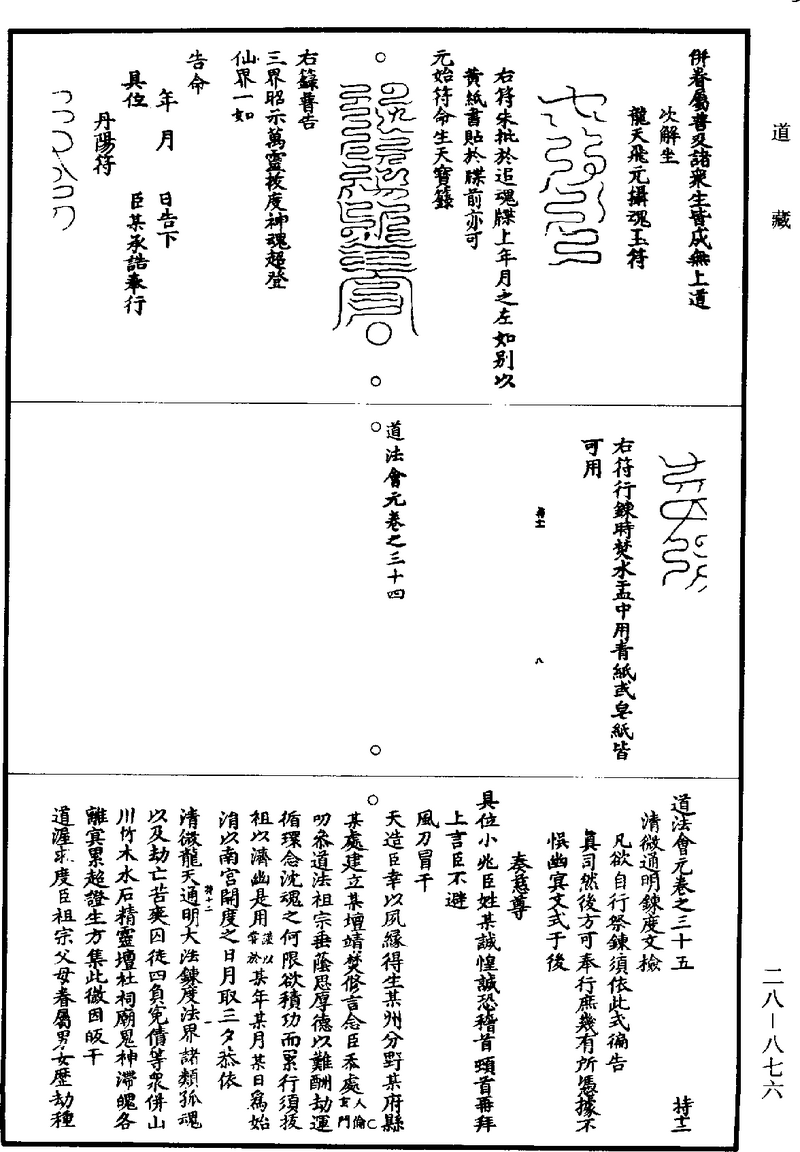 道藏
併眷屬普及諸衆生皆成無上道
次解坐
龍天飛元攝魂玉符
右符朱批於追魂牒上年月之左如别以
黄紙書貼於牒前亦可
元始符命生天寶籙
右籙普告
三界昭示萬靈拔度神魂超登
仙界一如
告命
年 月 日告下
具位 臣某承誥奉行
丹陽符
右符行鍊時焚水盂中用青紙或皂紙皆
可用
八
道法會元卷之三十四
道法會元卷之三十五 持十二
清微通明鍊度文檢
凡欲自行祭鍊須依此式徧告
真司然後方可奉行庶幾有所憑據不
悞幽冥文式于後
奏慈尊
具位小兆臣姓某誠惶誠恐稽首頓首再拜
上言臣不避
風刀冒干
天造臣幸以夙緣得生某州分野某府縣
某處建立某壇靖焚修言念臣忝處人倫玄門
叨參道法祖宗垂蔭恩厚德以難酬劫運
循環念沈魂之何限欲積功而累行須拔
祖以濟幽是用謹以某年某月某日爲始
涓以南宫開度之日月取三夕恭依
清微龍天通明大法鍊度法界諸類孤魂
以及劫亡苦爽囚徒四負寃債等衆併山
川竹木水石精靈壇社祠廟鬼神滯魄各
離冥累超證生方集此微因皈干
道渥求度臣祖宗父母眷屬男女歷劫種
二八—八七六